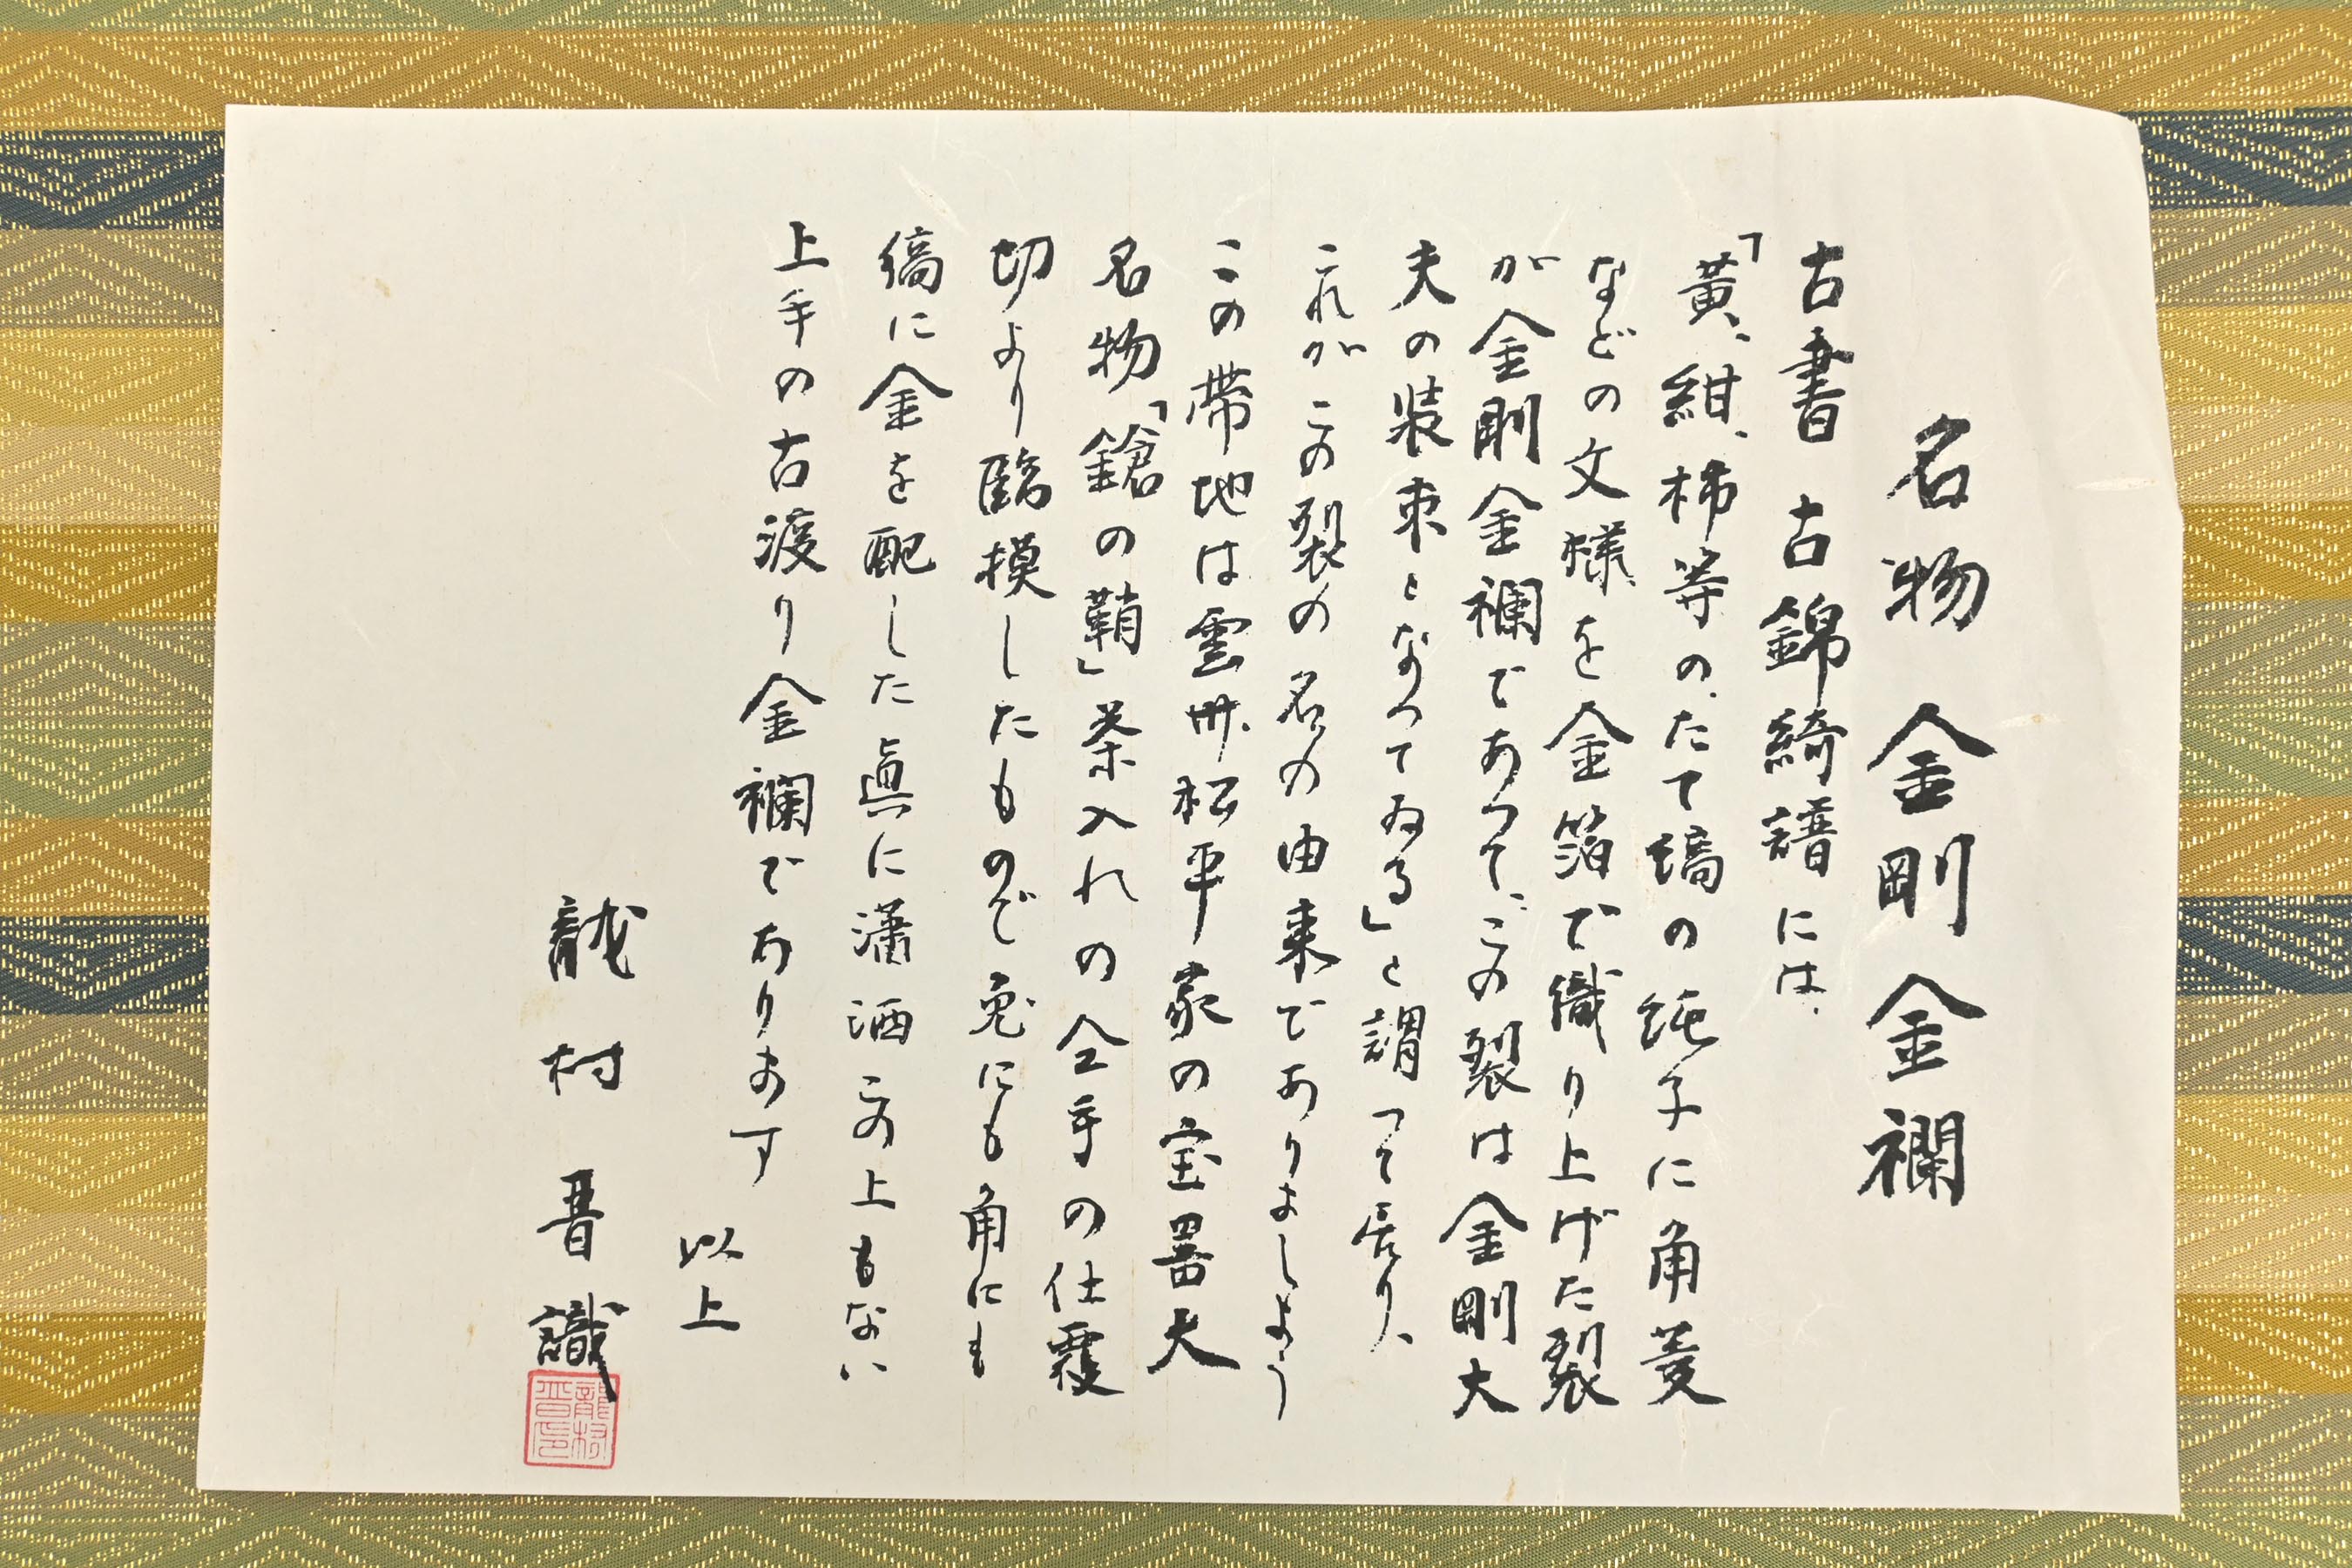 名物 金剛金襴
古書 古錦綺譜には、
「黄、紺、柿等の、たて縞の純子に角菱
などの文様を金箔で織り上げた裂
が金剛金襴であつて、この裂は金剛大
夫の装束となつてゐる」と謂つて居り、
これがこの裂の名の由来でありましよう
この帯地は雲州松平家の宝器大
名物「鎗の鞘」茶入れの仝手の仕覆
切より臨模したもので兎にも角にも
縞に金を配した眞に瀟洒この上もない
上手の古渡り金襴であります
以上
龍村晋識
龍村晋印